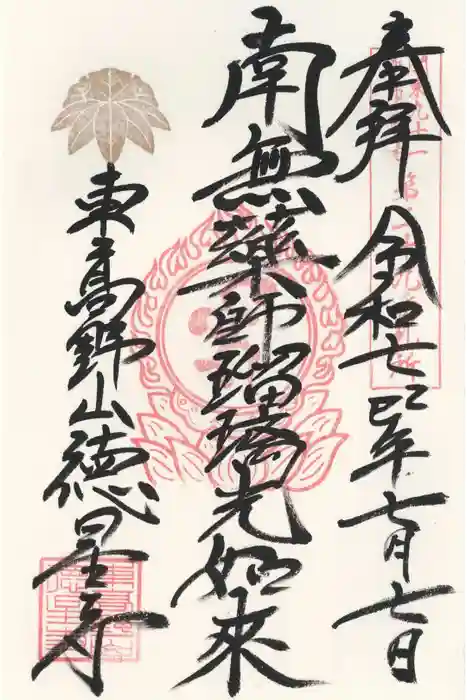 奉拝 令和七乙巳年七月七日
南無薬師瑠璃光如来
東高野山徳星寺